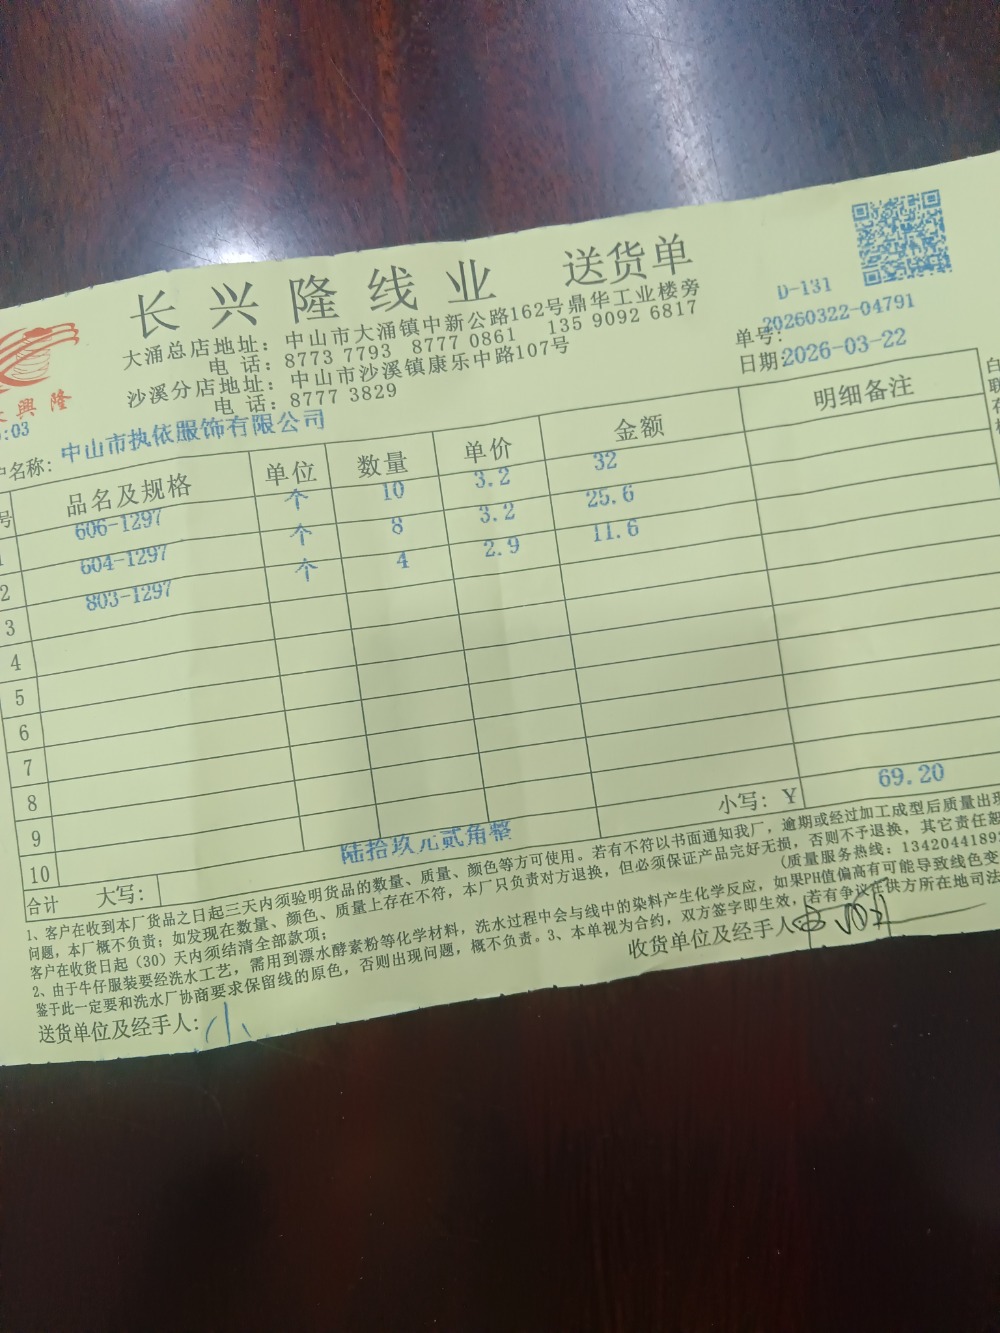 长兴隆线业 送货单
D-131
大涌总店地址：中山市大涌镇中新公路162号鼎华工业楼旁
电 话：8773 7793 8777 0861 135 9092 6817
单号：20260322-04791
沙溪分店地址：中山市沙溪镇康乐中路107号
电 话：8777 3829
日期：2026-03-22
興隆
:03
户名称：中山市执依服饰有限公司
号 品名及规格 单位 数量 单价 金额 明细备注
1 606-1297 个 10 3.2 32
2 604-1297 个 8 3.2 25.6
3 803-1297 个 4 2.9 11.6
4
5
6
7
8
9
10
小写：Y 69.20
合计 大写： 陆拾玖元贰角整
1、客户在收到本厂货品之日起三天内须验明货品的数量、质量、颜色等方可使用。若有不符以书面通知我厂，逾期或经过加工成型后质量出现
问题，本厂概不负责；如发现在数量、颜色、质量上存在不符，本厂只负责对方退换，但必须保证产品完好无损，否则不予退换，其它责任恕
客户在收货日起（30）天内须结清全部款项；
（质量服务热线：1342044189
2、由于牛仔服装要经洗水工艺，需用到漂水酵素粉等化学材料，洗水过程中会与线中的染料产生化学反应，如果PH值偏高有可能导致线色变
鉴于此一定要和洗水厂协商要求保留线的原色，否则出现问题，概不负责。3、本单视为合约，双方签字即生效，若有争议在供方所在地司法
送货单位及经手人：小
收货单位及经手人